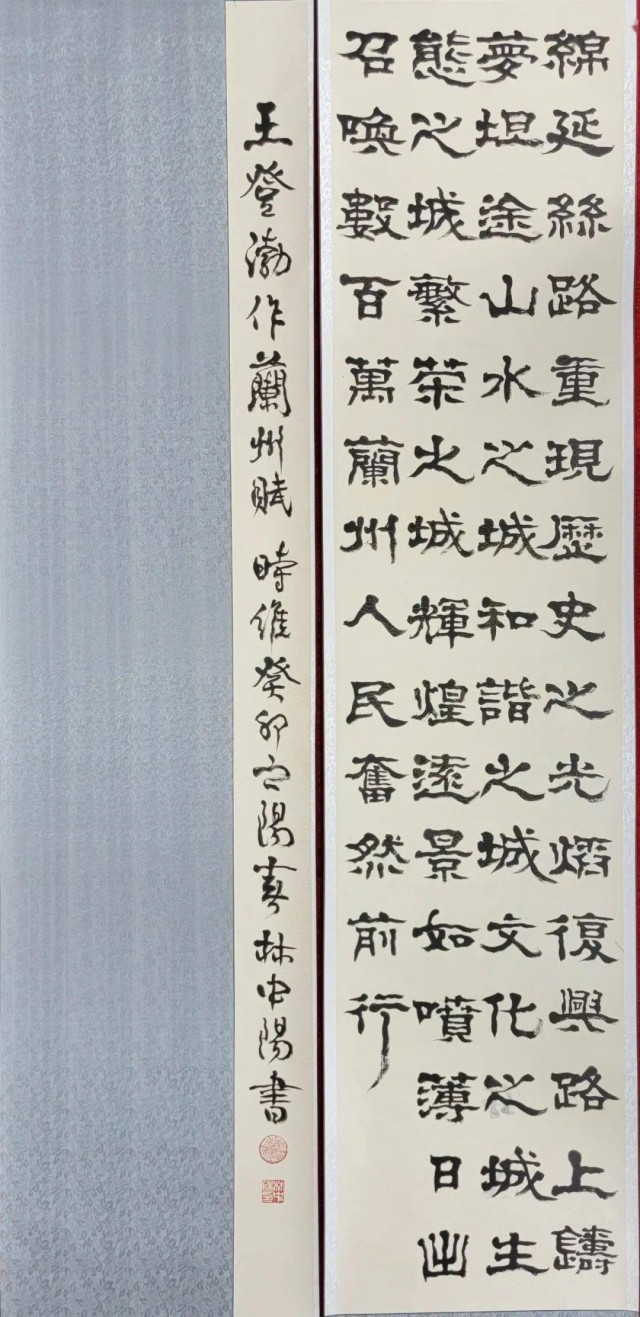 綿延絲路重現歷史之光熠復興路上鑄
夢坦途山水之城和諧之城文化之城生
態之城繁荣之城輝煌遠景如噴薄日出
召喚數百萬蘭州人民奮然前行
王登渤作蘭州賦 時維癸卯之陽春林中陽書